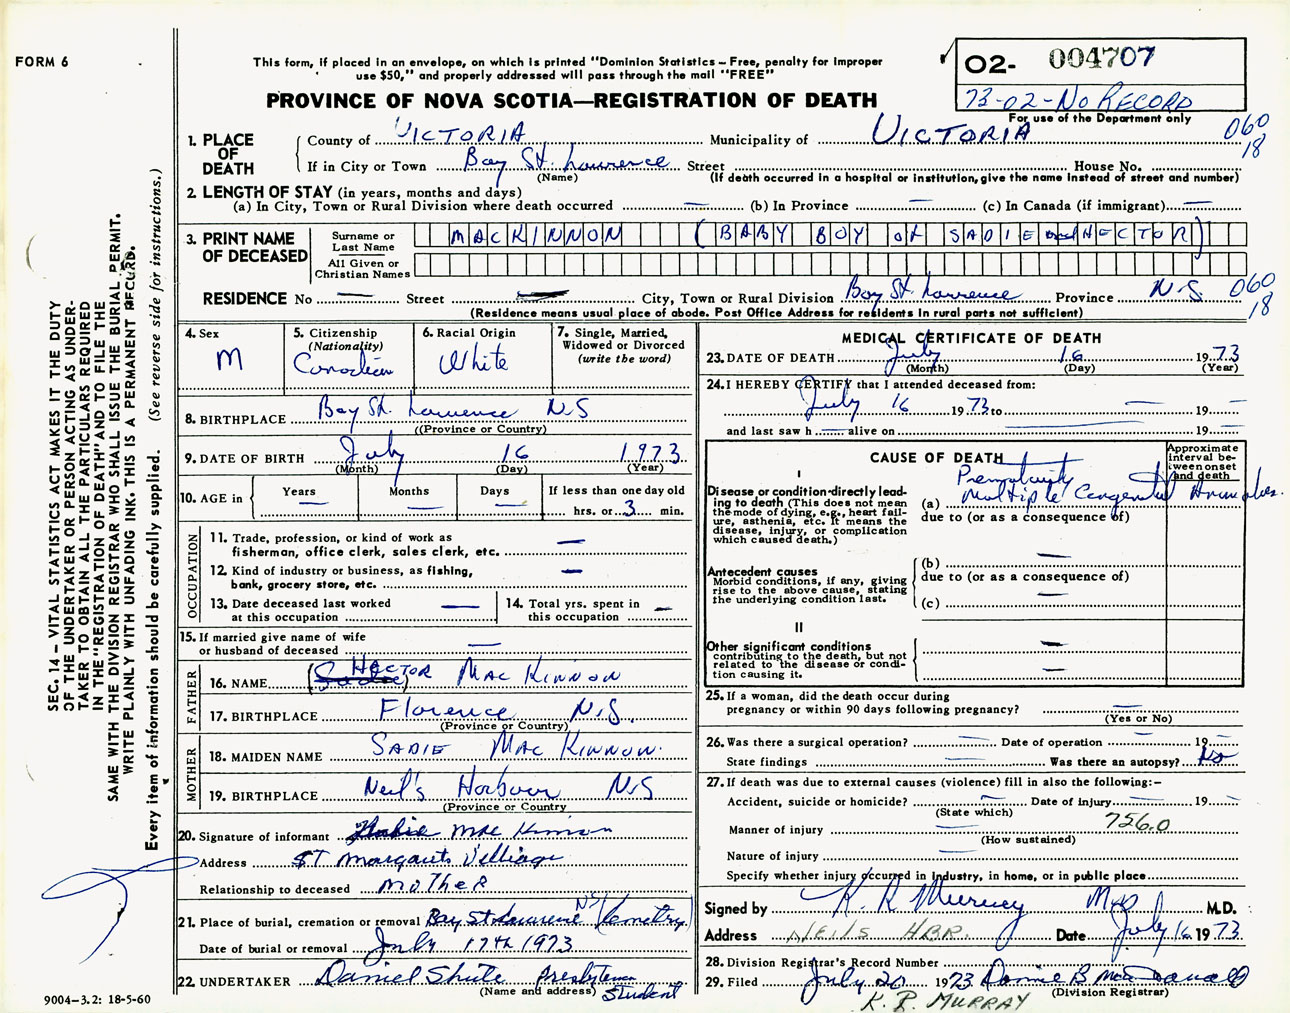 FORM 6
This form, if placed in an envelope, on which is printed "Dominion Statistics – Free, penalty for improper
use $50," and properly addressed will pass through the mail "FREE"
PROVINCE OF NOVA SCOTIA—REGISTRATION OF DEATH
02- 004707
73-02-No RECORD
For use of the Department only
1. PLACE OF DEATH
County of VICTORIA Municipality of VICTORIA 060 18
If in City or Town Bay St. Lawrence Street House No.
(Name) (If death occurred in a hospital or institution, give the name instead of street and number)
2. LENGTH OF STAY (in years, months and days)
(a) In City, Town or Rural Division where death occurred — (b) In Province — (c) In Canada (if immigrant) —
3. PRINT NAME OF DECEASED
Surname or Last Name MACKINNON (BABY BOY OF SADIE and HECTOR)
All Given or Christian Names
RESIDENCE No — Street — City, Town or Rural Division Bay St. Lawrence Province N.S. 060 18
(Residence means usual place of abode. Post Office Address for residents in rural parts not sufficient)
4. Sex M
5. Citizenship (Nationality) Canadian
6. Racial Origin White
7. Single, Married, Widowed or Divorced (write the word)
8. BIRTHPLACE Bay St. Lawrence N.S
((Province or Country)
9. DATE OF BIRTH July 16 1973
(Month) (Day) (Year)
10. AGE in Years — Months — Days — If less than one day old
hrs. or 3 min.
OCCUPATION
11. Trade, profession, or kind of work as
fisherman, office clerk, sales clerk, etc. —
12. Kind of industry or business, as fishing,
bank, grocery store, etc. —
13. Date deceased last worked
at this occupation —
14. Total yrs. spent in
this occupation —
15. If married give name of wife
or husband of deceased —
FATHER
16. NAME (Sadie) HECTOR MAC KINNON
17. BIRTHPLACE Florence N.S.
(Province or Country)
MOTHER
18. MAIDEN NAME SADIE MAC KINNON.
19. BIRTHPLACE Neil's Harbour N.S
(Province or Country
20. Signature of informant Mac Kinnon
Address ST Margarets Villiage
Relationship to deceased MOTHER
21. Place of burial, cremation or removal Bay St Lawrence NS (Cemetry)
Date of burial or removal July 17th 1973
22. UNDERTAKER Daniel Shute Presbyterian Student
(Name and address)
MEDICAL CERTIFICATE OF DEATH
23. DATE OF DEATH July 16 1973
(Month) (Day) (Year)
24. I HEREBY CERTIFY that I attended deceased from:
July 16 1973 to — 19 —
and last saw h — alive on — 19 —
CAUSE OF DEATH
Approximate interval between onset and death
I
Disease or condition directly lead-
ing to death (This does not mean
the mode of dying, e.g., heart fail-
ure, asthenia, etc. It means the
disease, injury, or complication
which caused death.)
Prematurity
(a) Multiple Congenital Anomalies.
due to (or as a consequence of)
Antecedent causes
Morbid conditions, if any, giving
rise to the above cause, stating
the underlying condition last.
(b) —
due to (or as a consequence of)
(c) —
II
Other significant conditions
contributing to the death, but not
related to the disease or condi-
tion causing it.
25. If a woman, did the death occur during
pregnancy or within 90 days following pregnancy? —
(Yes or No)
26. Was there a surgical operation? — Date of operation — 19 —
State findings — Was there an autopsy? No
27. If death was due to external causes (violence) fill in also the following:–
Accident, suicide or homicide? — Date of injury — 19 —
(State which)
Manner of injury — 756.0
(How sustained)
Nature of injury —
Specify whether injury occurred in industry, in home, or in public place
Signed by K. R Murray MD M.D.
Address NEILS HBR. Date July 16 1973.
28. Division Registrar's Record Number
29. Filed July 20 1973 Donnie B MacDonald
(Division Registrar)
K. R. MURRAY
SEC. 14 – VITAL STATISTICS ACT MAKES IT THE DUTY
OF THE UNDERTAKER OR PERSON ACTING AS UNDER-
TAKER TO OBTAIN ALL THE PARTICULARS REQUIRED
IN THE "REGISTRATION OF DEATH" AND TO FILE THE
SAME WITH THE DIVISION REGISTRAR WHO SHALL ISSUE THE BURIAL PERMIT.
WRITE PLAINLY WITH UNFADING INK. THIS IS A PERMANENT RECORD.
Every item of information should be carefully supplied. (See reverse side for instructions.)
9004-3.2: 18-5-60